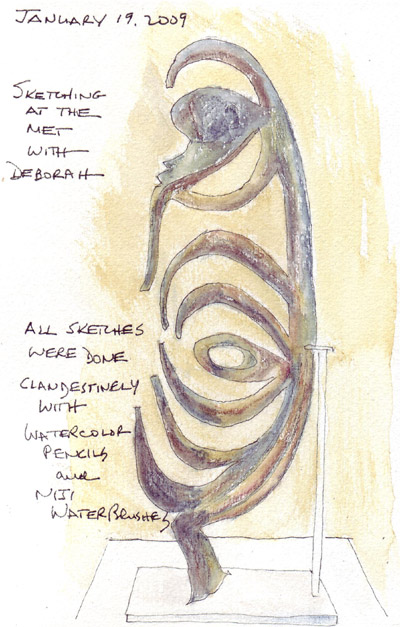 JANUARY 19, 2009
SKETCHING
AT THE
MET
WITH
DEBORAH
ALL SKETCHES
WERE DONE
CLANDESTINELY
WITH
WATERCOLOR
PENCILS
and
NIJI
WATERBRUSHES